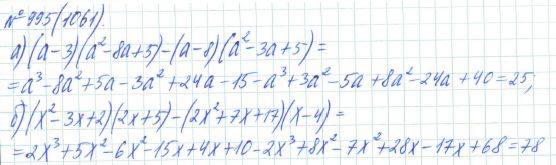 № 995(1061).
а) (a-3)(a²-8a+5)-(a-8)(a²-3a+5)=
=a³-8a²+5a-3a²+24a-15-a³+3a²-5a+8a²-24a+40=25;
б) (x²-3x+2)(2x+5)-(2x²+7x+17)(x-4)=
=2x³+5x²-6x²-15x+4x+10-2x³+8x²-7x²+28x-17x+68=78